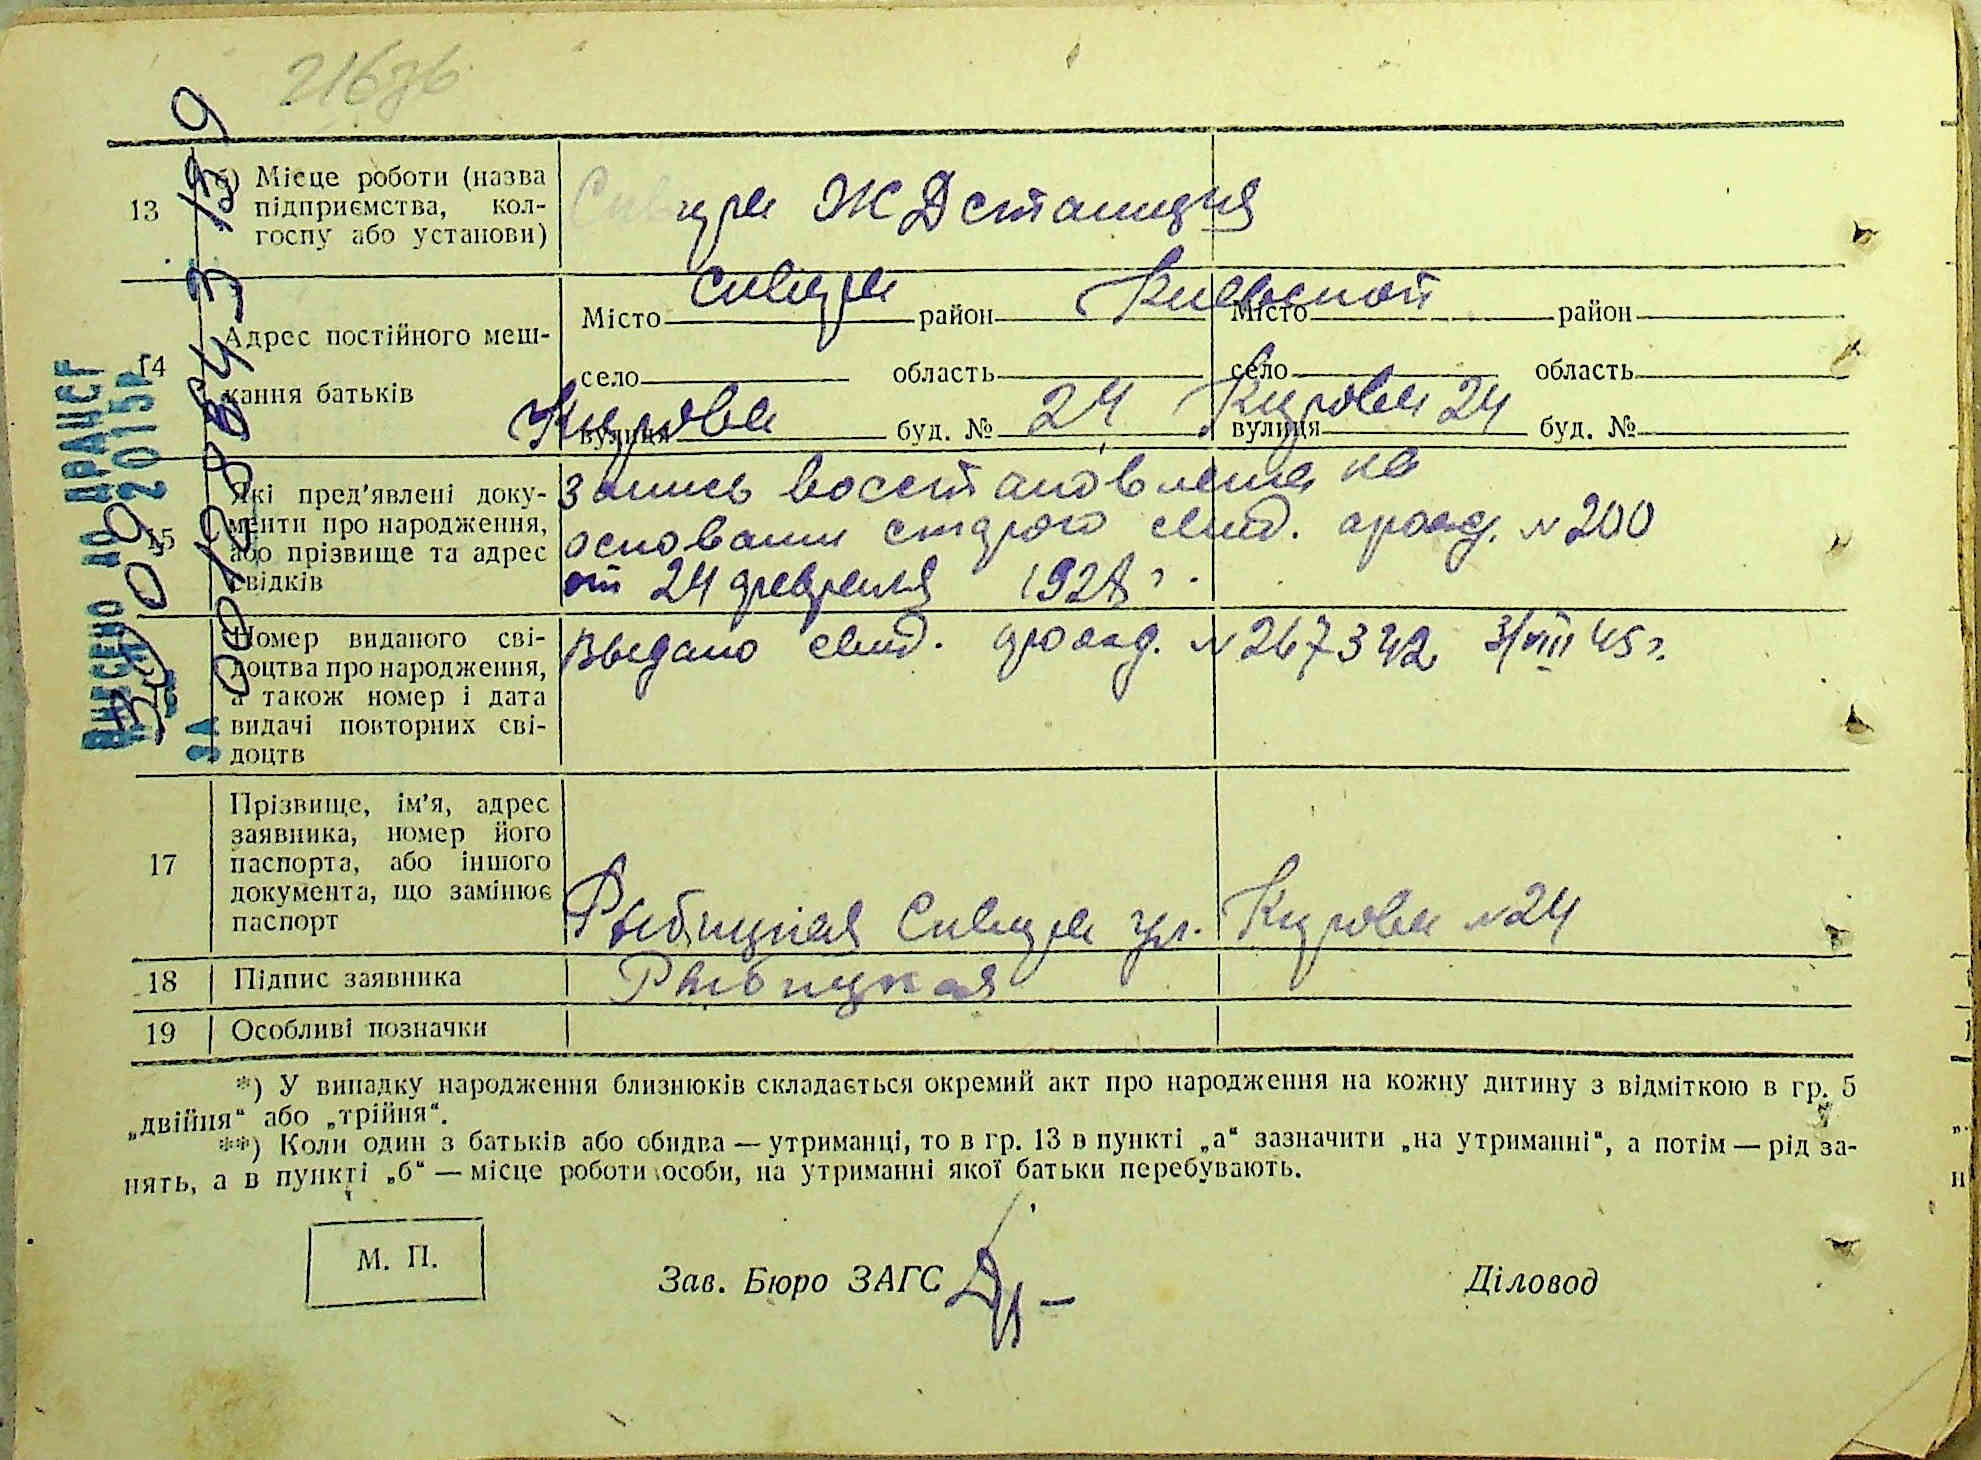 13
б) Місце роботи (назва
підприємства, кол-
госпу або установи)
Сквира ЖД станция
14
Адрес постійного меш-
кання батьків
Місто Сквира район Киевской
село область
вулиця Кирова буд. № 24
Місто район
село область
вулиця Кирова 24 буд. №
15
Які пред'явлені доку-
менти про народження,
або прізвище та адрес
свідків
запись восстановлена на
основании старого свид. о рожд. № 200
от 24 февраля 1928 г.
Номер виданого сві-
доцтва про народження,
а також номер і дата
видачі повторних сві-
доцтв
Выдано свид. о рожд. № 267342 31/VIII 45 г.
17
Прізвище, ім'я, адрес
заявника, номер його
паспорта, або іншого
документа, що замінює
паспорт
Рыбицкая Сквира ул. Кирова № 24
18 Підпис заявника Рыбицкая
19 Особливі позначки
*) У випадку народження близнюків складається окремий акт про народження на кожну дитину з відміткою в гр. 5
„двійня“ або „трійня“.
**) Коли один з батьків або обидва — утриманці, то в гр. 13 в пункті „а“ зазначити „на утриманні“, а потім — рід за-
нять, а в пункті „б“ — місце роботи особи, на утриманні якої батьки перебувають.
М. П.
Зав. Бюро ЗАГС
Діловод
ВНЕСЕНО ДО ДРАЦСГ
30 09 2015р
ЗА №